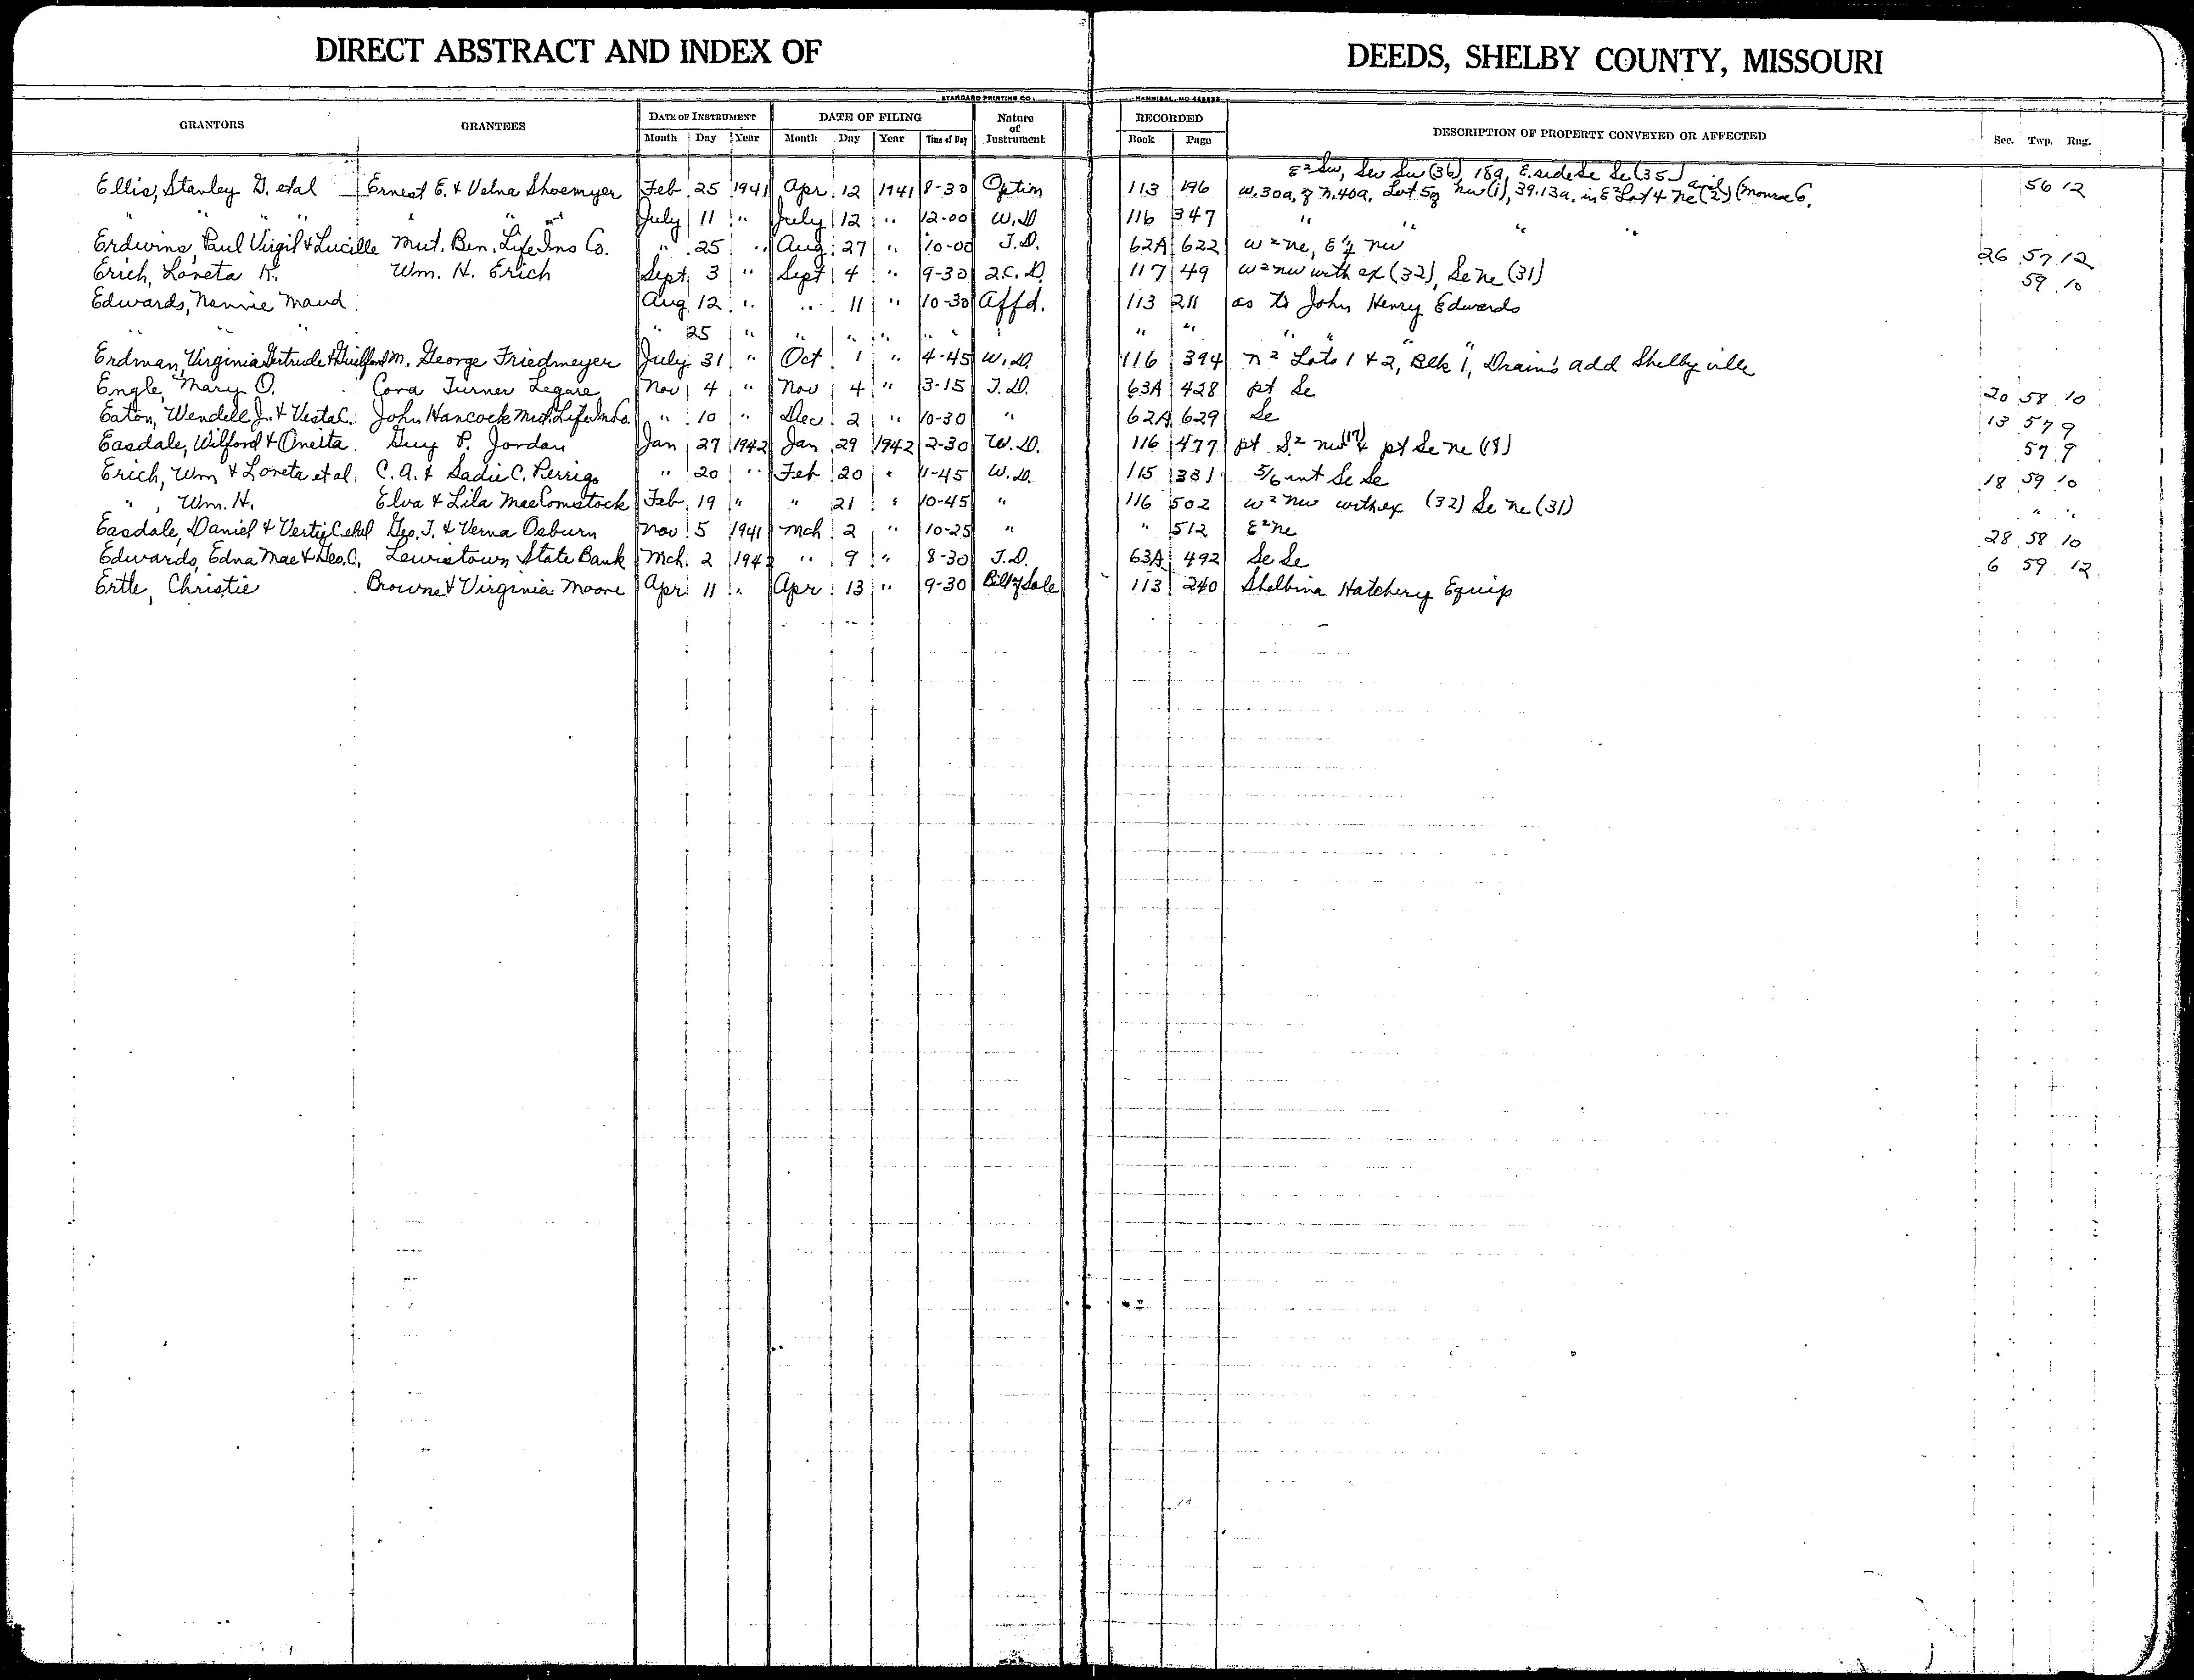 DIRECT ABSTRACT AND INDEX OF DEEDS, SHELBY COUNTY, MISSOURI
STANDARD PRINTING CO. HANNIBAL, MO
GRANTORS GRANTEES DATE OF INSTRUMENT DATE OF FILING Nature of Instrument RECORDED DESCRIPTION OF PROPERTY CONVEYED OR AFFECTED Sec. Twp. Rng.
Month Day Year Month Day Year Time of Day Book Page
E² Sw, Sw Sw (36), 18a, E. side Se Se (35) and
Ellis, Stanley D. etal Ernest E. & Velna Shoemyer Feb 25 1941 Apr 12 1941 8-30 Option 113 196 W. 30a, of N. 40a, Lot 5 of nw (1), 39.13a, in E² Lot 4 ne (2) (Monroe C. 56 12
" " " " " " " July 11 " July 12 " 12-00 W.D 116 347 " " " "
Erdwins, Paul Virgil & Lucille Mut. Ben. Life Ins Co. " 25 " Aug 27 " 10-00 T.D. 62A 622 W² ne, E½ nw 26 57 12
Erich, Loneta K. Wm. H. Erich Sept 3 " Sept 4 " 9-30 Q.C.D. 117 49 W² nw with ex (32), Se ne (31) 59 10
Edwards, Nannie Maud Aug 12 " " 11 " 10-30 Affd. 113 211 as to John Henry Edwards
" " " " 25 " " " " " " " " " " " "
Erdman, Virginia Gertrude & Guilford M. George Friedmeyer July 31 " Oct 1 " 4-45 W.D. 116 394 N² Lots 1 & 2, Blk 1, Drain's Add Shelbyville
Engle, Mary O. Cora Turner Legare Nov 4 " Nov 4 " 3-15 T.D. 63A 428 pt Se 20 58 10
Eaton, Wendell J. & Vesta C. John Hancock Mut. Life Ins Co. " 10 " Dec 2 " 10-30 " 62A 629 Se 13 57 9
Easdale, Wilford & Oneita Guy P. Jordan Jan 27 1942 Jan 29 1942 2-30 W.D. 116 477 pt S² nw (17) & pt Se ne (18) 57 9
Erich, Wm & Loneta et al C. A. & Sadie C. Perrigo " 20 " Feb 20 " 1-45 W.D. 115 331 5/6 int Se Se 18 59 10
" , Wm. H. Elva & Lila Mae Comstock Feb 19 " " 21 " 10-45 " 116 502 W² nw with ex (32) Se ne (31) " "
Easdale, Daniel & Verty C. etal Geo. T. & Verna Osburn Nov 5 1941 Mch 2 " 10-25 " " 512 E² ne 28 58 10
Edwards, Edna Mae & Geo. C. Lewistown State Bank Mch. 2 1942 " 9 " 8-30 T.D. 63A 492 Se Se 6 59 12
Ertle, Christie Browne & Virginia Moore Apr 11 " Apr 13 " 9-30 Bill of Sale 113 240 Shelbina Hatchery Equip